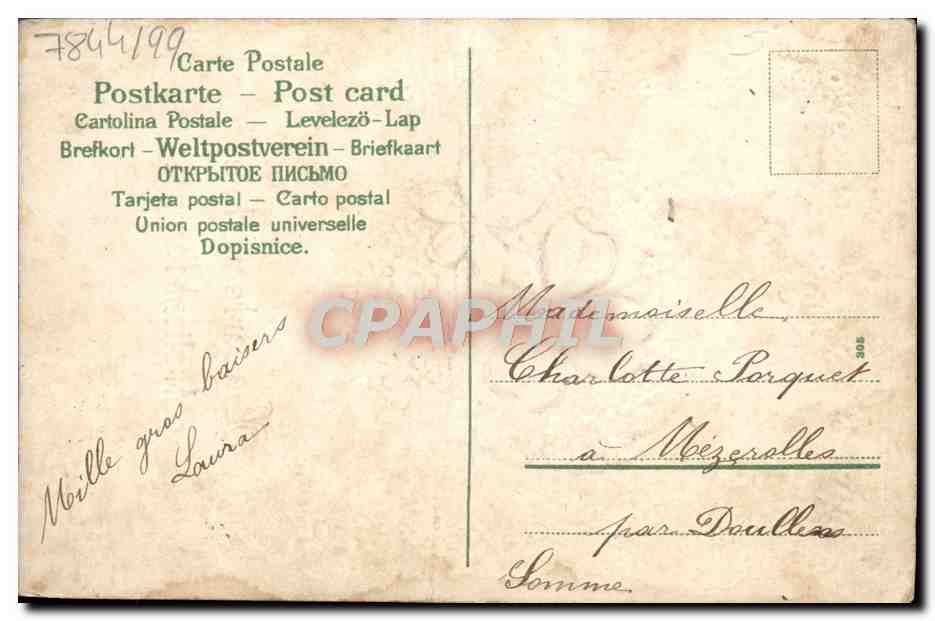 7844/99
Carte Postale
Postkarte – Post card
Cartolina Postale — Levelezö-Lap
Brefkort – Weltpostverein – Briefkaart
ОТКРЫТОЕ ПИСЬМО
Tarjeta postal — Carto postal
Union postale universelle
Dopisnice.
Mille gros baisers
Laura
CPAPHIL
Mademoiselle
Charlotte Porquet
à Mézerolles
par Doullens
Somme
305